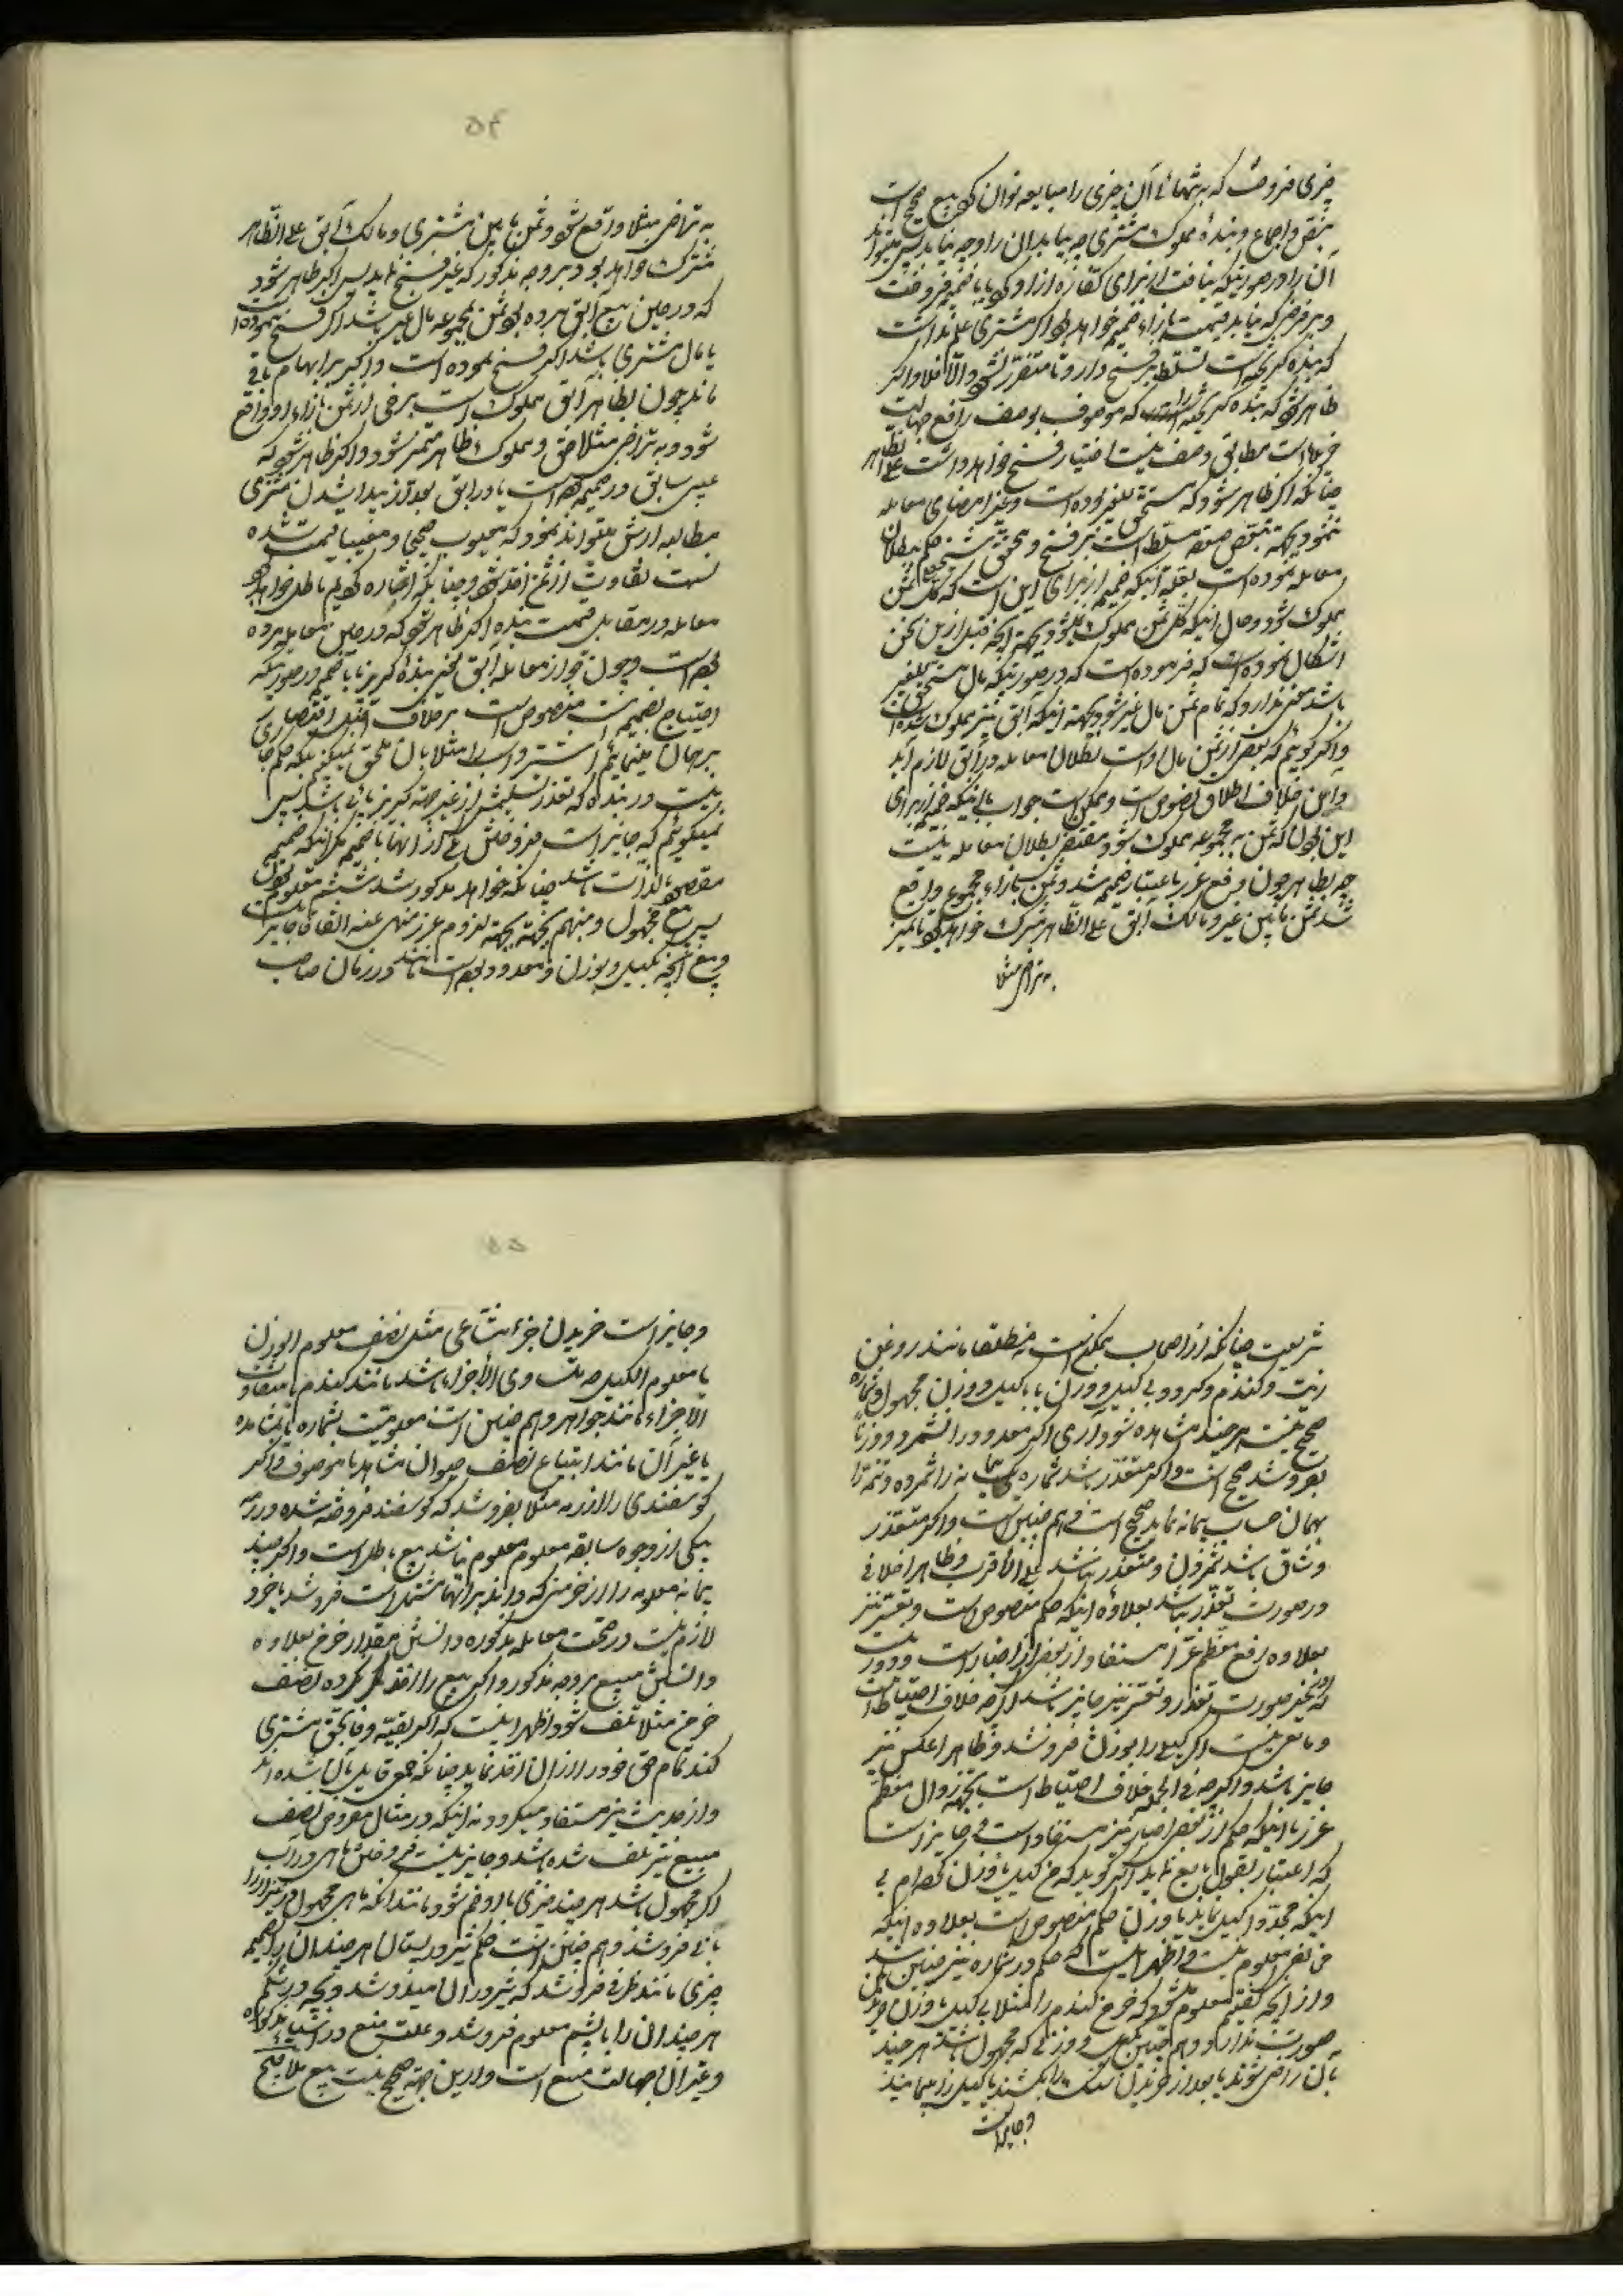 چیزی فروخت که به تنهائی آن چیزی را مبایعه توان کرد بیع صحیح است
بنقل و اجماع و بنده مملوک مشتری چه بیابد آن را و چه نیابد پس میتواند
آن را در صورتیکه نیافت از برای کفاره آزاد کرد یا با ضمیمه فروخت
و بر فرض که نیابد قیمت بازاء ضمیمه خواهد بود و اگر مشتری علم نداشت
که بنده گریخته است تسلط بر فسخ دارد تا متضرر نشود و الا فلا و اگر
ظاهر شود که بنده گریخته که موصوف بوصف رافع جهالت
است مطابق وصف نیست اختیار فسخ خواهد داشت علی الظاهر
چنانکه اگر ظاهر شود که مستحق للغیر بوده است و غیر امضای معامله
ننمود بجهة تبعض صفقه مسلط است بر فسخ و محقق شیخ حکم ببطلان
معامله نموده است بعلة آنکه ضمیمه از برای این است که کل ثمن
مملوک شود و حال اینکه کل ثمن مملوک نشود بجهة آنچه قبل ازین سخن
اشکال نموده است که فرموده است که در صورتیکه مال مستحق للغیر
باشد معنی ندارد که تمام ثمن مال غیر شود بجهة اینکه آبق نیز مملوک شده است
و اگر گوئیم که بعض از ثمن مال او است بطلان معامله در آبق لازم آید
و این خلاف اطلاق نصوص است و ممکن است جواب باینکه ضمیمه از برای
این بودن که ثمن به مجموع مملوک شود مقتضی بطلان معامله نیست
چه بظاهر چون رفع غرر باعتبار ضمیمه شد و ثمن بازاء مجموع واقع
شد ثمن مابین غیر و مالک آبق علی الظاهر مشترک خواهد بود تا تمیز
به تراضی مثلا
۵۴
به تراضی مثلا واقع شود و ثمن مابین مشتری و مالک آبق علی الظاهر
مشترک خواهد بود بر وجه مذکور که غیر فسخ نماید پس اگر ظاهر شود
که در حین بیع آبق مرده بود ثمن مجموعه مال غیر باشد اگر فسخ ننموده است
یا مال مشتری باشد اگر فسخ نموده است و اگر بر ابهام باقی
ماند چون بظاهر آبق مملوک است برخی از ثمن بازاء او واقع
شود و به تراضی مثلا حق و مملوک ظاهر متمیز شود و اگر ظاهر شود که
عیبی سابق در ضمیمه بوده است یا در آبق بعد از پیدا شدن مشتری
مطالبه ارش میتواند نمود که معیوب صحیحا و معیبا قیمت شده
نسبت تفاوت از ثمن اخذ شود و چنانکه اشاره کردیم باطل خواهد بود
معامله در مقابل قیمت بنده اگر ظاهر شود که در حین معامله مرده
بوده است و چون جواز معامله آبق یعنی بنده گریزپا با ضمیمه در صورتیکه
احتیاج بضمیمه است منصوص است بر خلاف اقتصاری
بر همان مینمائیم و شتر و اسب را مثلا بآن ملحق نمیکنیم بلکه حکم جا
نیست در بنده که تعذر تسلیمش از غیر جهة گریزپائی باشد پس
نمیگوئیم که جایز است فروختن یکی از آنها با ضمیمه مگر اینکه ضمیمه
مقصود بالذات باشد چنانکه خواهد مذکور شد ششم معلوم بودن
پس بیع مجهول و مبهم بجهة لزوم غرر منهی عنه اتفاقا جایز نیست
و بیع آنچه مکیل و موزون و معدود بوده است مانند در زمان صاحب
شریعت چنانکه از اصحاب مطلقا مانند روغن
زیت و گندم و گردو بی کیل و وزن یا با کیل و وزن مجهول و شماره
صحیح نیست هر چند مشاهده شود آری اگر معدود را نشمرد و وزنا
بفروشد صحیح است و اگر متعذر باشد شماره یک پیمانه را شمرده و تتمه را
بهمان حساب پیمانه نماید صحیح است و هم چنین است و اگر متعذر
و شاق باشد شمردن و متعذر نباشد علی الاقرب و ظاهرا خلافی
در صورت تعذر نباشد بعلاوه اینکه حکم منصوص است و تعسر نیز
بعلاوه رفع معظم غرر مستفاد از بعض از اخبار است و دور نیست
که در غیر صورت تعذر و تعسر نیز جایز باشد اگر چه خلاف احتیاط است
و مانعی نیست اگر کیلی را بوزن فروشد و ظاهرا عکس نیز
جایز باشد و اگر چه فی الجمله خلاف احتیاط است بجهة زوال معظم
غرر با اینکه حکم از بعض اخبار نیز مستفاد است و جایز است
که اعتبار بقول بایع نماید اگر گوید که من کیل یا وزن کرده‌ام بی
اینکه مجددا کیل نماید یا وزن حکم منصوص است بعلاوه اینکه
معلوم نیست و اظهر اینست که حکم در شماره نیز چنین باشد
و از آنچه گفتیم معلوم شود که خرمن گندم را مثلا بی کیل یا وزن
صورت ندارد و هم چنین کیل و وزنی که مجهول باشد هر چند
بآن راضی شوند یا بعد از خریدن سنگ را بکشند یا کیل را پیمایند
و جایز است
۵۵
و جایز است خریدن جزء مشاعی مثل نصف معلوم الوزن
یا معلوم الکیل چه متساوی الأجزاء باشد مانند گندم یا متفاوت
الأجزاء مانند جواهر و هم چنین است معلومیت بشماره یا مشاهده
یا غیر آن مانند ابتیاع نصف حیوان مشاهد یا موصوف و اگر
گوسفندی را از رمه مثلا بفروشد که گوسفند فروخته شده در رمه
بیکی از وجوه سابقه معلوم معلوم نباشد بیع باطل است و اگر چند
پیمانه معلومه را از خرمنی که داند بر آنها مشتمل است فروشد یا خرد
لازم نیست در صحت معامله مذکوره دانستن مقدار خرمن بعلاوه
دانستن مبیع بروجه مذکور و اگر بیع را اخذ نکرده نصف
خرمن مثلا تلف شود اظهر اینست که اگر بقیه وفا بحق مشتری
کند تمام حق خود را از آن اخذ نماید چنانکه جمعی قایل بآن شده‌اند
و از حدیث نیز مستفاد میگردد نه اینکه در مثال مفروض نصف
مبیع نیز تلف شده باشد و جایز نیست فروختن ماهی در آب
اگر مجهول باشد هر چند چیزی با او ضم شود مانند آنکه ماهی مجهول در نیزار را
با نی فروشد و هم چنین است حکم شیر در پستان هر چند آن را بضمیمه
چیزی مانند ظرفی فروشد که شیر در آن میدوشد و بچه در شکم
هر چند آن را با پشم معلوم فروشد و علت منع در اشیاء مذکوره
و غیر آن جهالت مبیع است و از این جهة صحیح نیست بیع ملاقیح